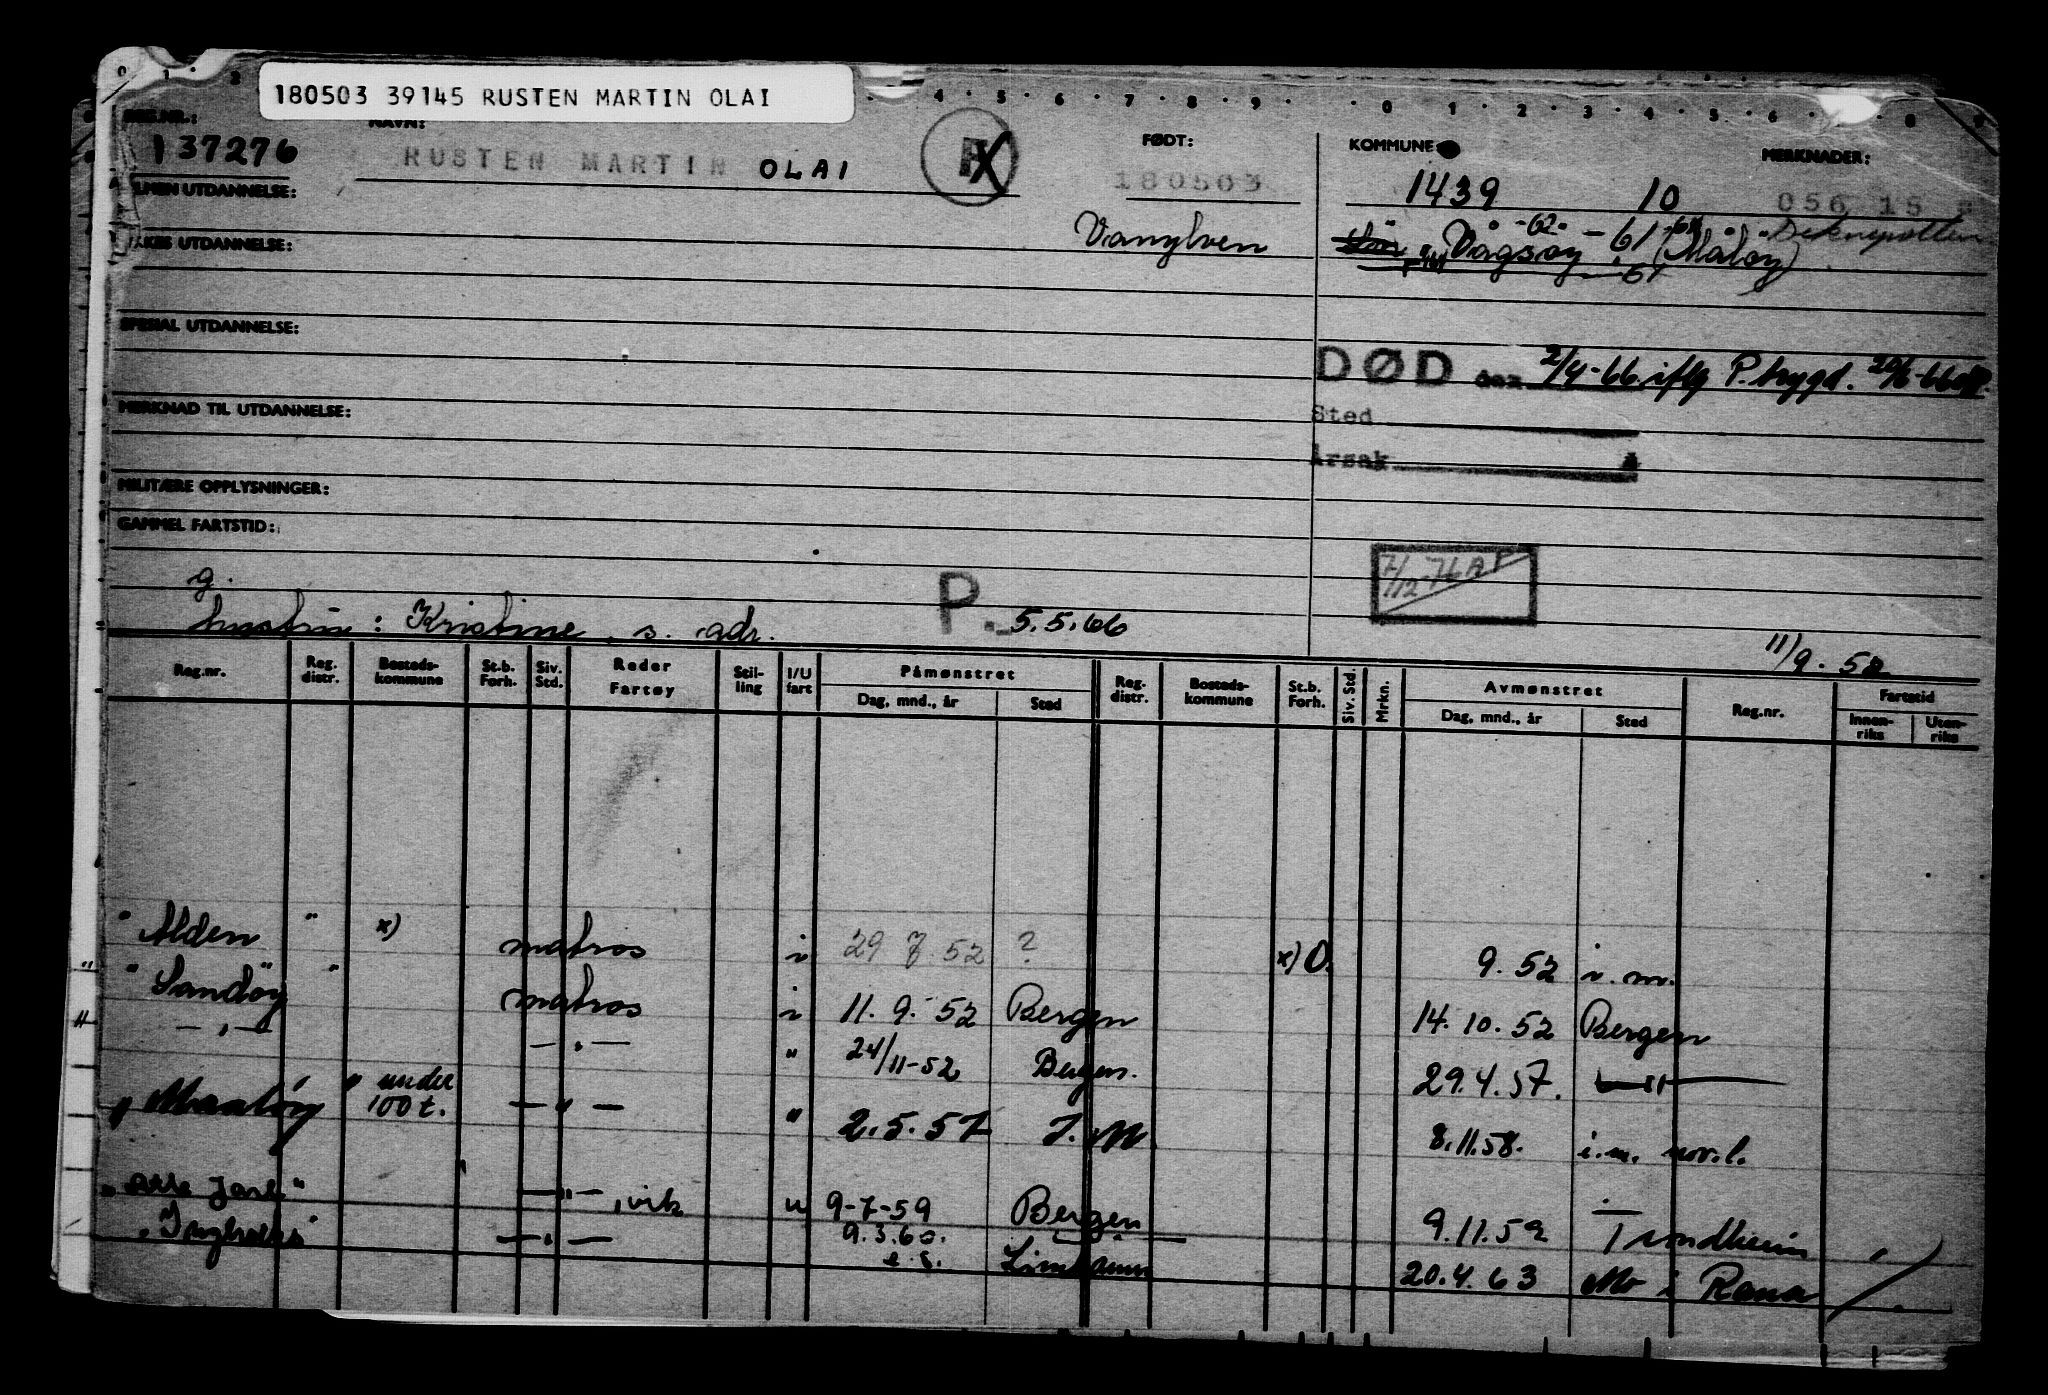 180503 39145 RUSTEN MARTIN OLAI
REG.NR.: NAVN: FØDT: KOMMUNE MERKNADER:
137276 RUSTEN MARTIN OLAI 180503 1439 10 056 15
ALMEN UTDANNELSE:
Vanylven Vågsøy -62- -61 (Måløy)
FAKES UTDANNELSE:
SPESIAL UTDANNELSE:
DØD den 2/4-66 iflg P.trygd.
MERKNAD TIL UTDANNELSE:
Sted
Årsak
MILITÆRE OPPLYSNINGER:
GAMMEL FARTSTID:
7/12-76 A
g.
hustru: Kristine, s. adr. P. 5.5.66
11/9. 52
Reg.nr. Reg. distr. Bosteds-kommune St.b. Forh. Siv. Std. Reder Fartøy Stil-ling I/U fart Påmønstret Dag, mnd., år Sted Reg. distr. Bosteds-kommune St.b. Forh. Siv. Std. Mrkn. Avmønstret Dag, mnd., år Sted Reg.nr. Fartstid Innen-riks Uten-riks
"Alden" x) matros i 29 7 52 ? x) O. 9. 52 i.m.
"Sandøy" matros i 11. 9. 52 Bergen 14. 10. 52 Bergen
— " — — " — " 24/11-52 Bergen. 29.4.57. — " —
" Maaløy " under 100 t. — " — " 2.5.57 I.M 8.11.58. i.m. nov.l.
" Jarl" — " —, vik u 9-7-59 Bergen 9.11.59 Trondheim
— " — 9.3.60. 20.4.63 Mo i Rana